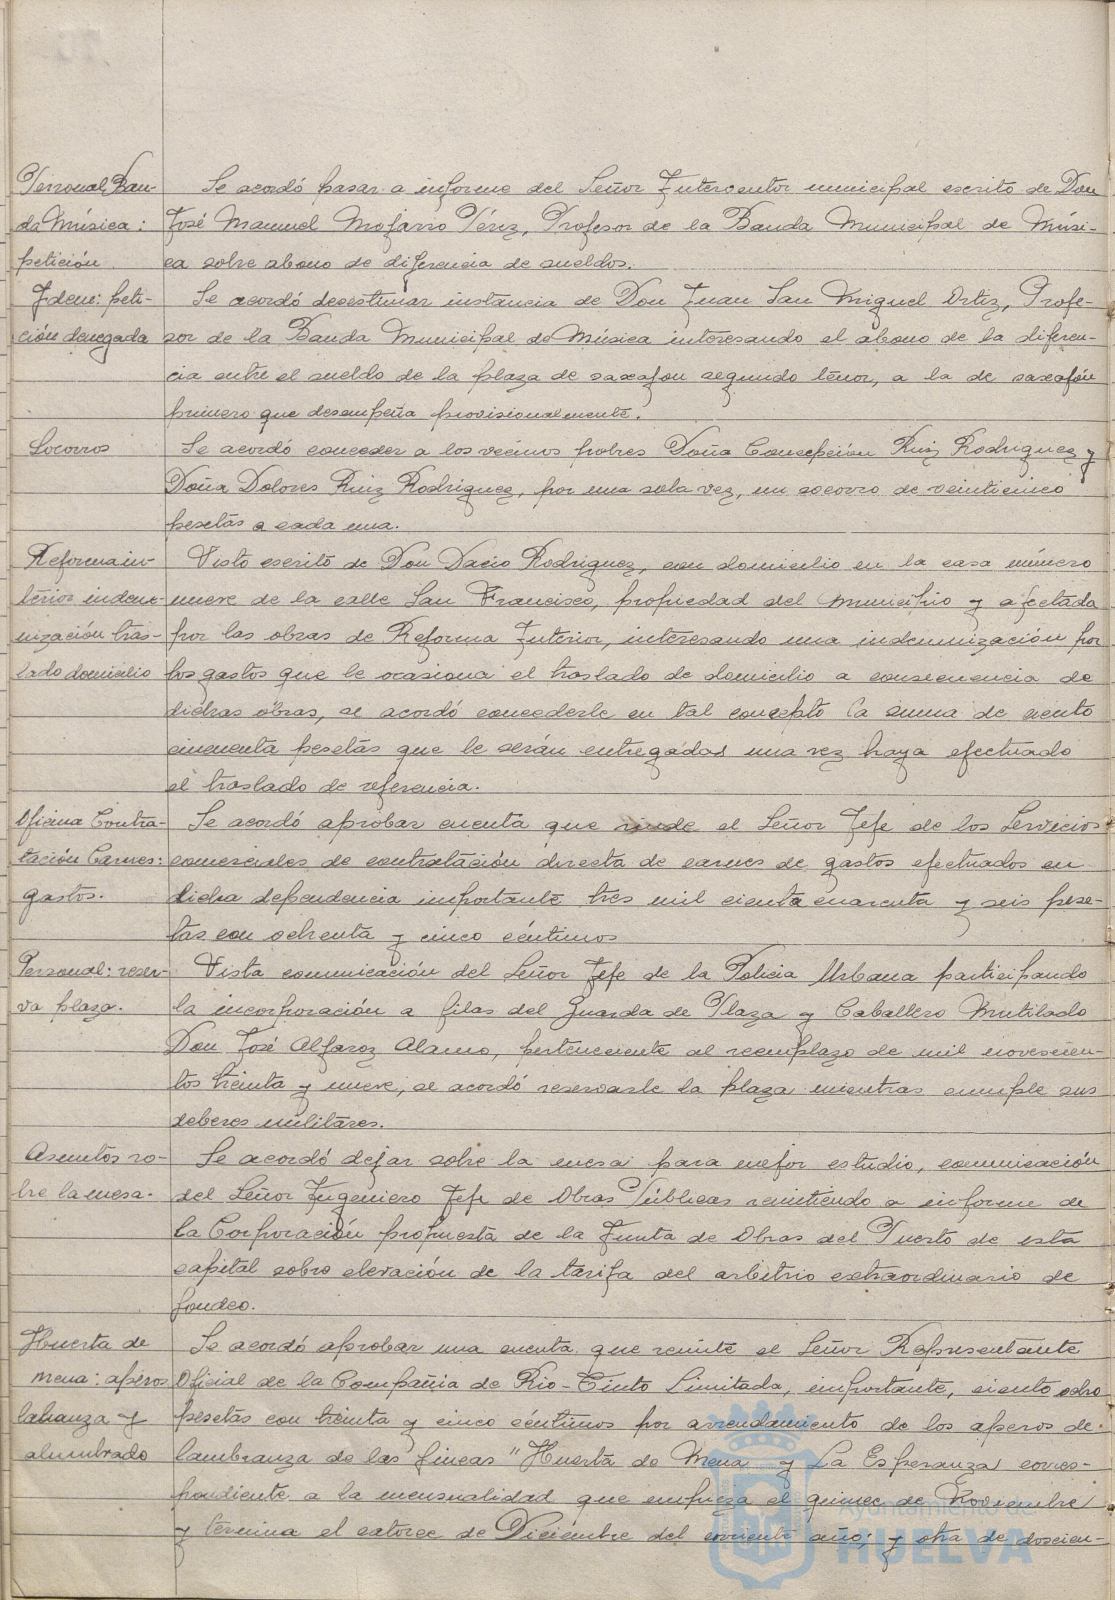 Personal Ban- Se acordó pasar a informe del Señor Interventor municipal escrito de Don
da Música: José Manuel Mofarro Pérez, Profesor de la Banda Municipal de Músi-
petición ca sobre abono de diferencia de sueldos.
Idem: peti- Se acordó desestimar instancia de Don Juan San Miguel Ortiz, Profe-
ción denegada sor de la Banda Municipal de Música interesando el abono de la diferen-
cia entre el sueldo de la plaza de saxafon segundo tenor, a la de saxofón
primero que desempeña provisionalmente.
Socorros Se acordó conceder a los vecinos pobres Doña Concepción Ruiz Rodriguez y
Doña Dolores Ruiz Rodriguez, por una sola vez, un socorro de veinticinco
pesetas a cada una.
Reforma in- Visto escrito de Don Dacio Rodriguez, con domicilio en la casa número
terior indem- nueve de la calle San Francisco, propiedad del Municipio y afectada
nización tras- por las obras de Reforma Interior, interesando una indemnización por
lado domicilio los gastos que le ocasiona el traslado de domicilio a consecuencia de
dichas obras, se acordó concederle en tal concepto la suma de ciento
cincuenta pesetas que le serán entregadas una vez haya efectuado
el traslado de referencia.
Oficina Contra- Se acordó aprobar cuenta que rinde el Señor Jefe de los Servicios
tación Carnes: comerciales de contratación directa de carnes de gastos efectuados en
gastos. dicha dependencia importante tres mil ciento cuarenta y seis pese-
tas con ochenta y cinco céntimos
Personal: reser- Vista comunicación del Señor Jefe de la Policia Urbana participando
va plaza. la incorporación a filas del Guarda de Plaza y Caballero Mutilado
Don José Alfaroz Alamo, perteneciente al reemplazo de mil novescien-
tos treinta y nueve, se acordó reservarle la plaza mientras cumple sus
deberes militares.
Asuntos so- Se acordó dejar sobre la mesa para mejor estudio, comunicación
bre la mesa. del Señor Ingeniero Jefe de Obras Públicas remitiendo a informe de
la Corporación propuesta de la Junta de Obras del Puerto de esta
capital sobre elevación de la tarifa del arbitrio extraordinario de
fondeo.
Huerta de Se acordó aprobar una cuenta que remite el Señor Representante
Mena: aperos Oficial de la Compañia de Rio-Tinto Limitada, importante, ciento ocho
labranza y pesetas con treinta y cinco céntimos por arrendamiento de los aperos de
alumbrado lambranza de las fincas "Huerta de Mena y La Esperanza corres-
pondiente a la mensualidad que empieza el quince de Noviembre
y termina el catorce de Diciembre del corriente año; y otra de doscien-
Ayuntamiento de
HUELVA